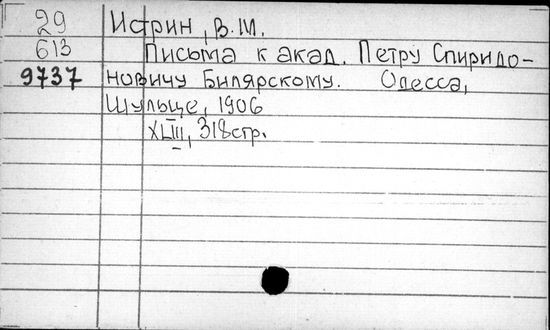 29 Истрин, В.М.
613 Письма к акад. Петру Спиридо-
9737 новичу Билярскому. Одесса,
Шульце, 1906
XLIII, 318стр.